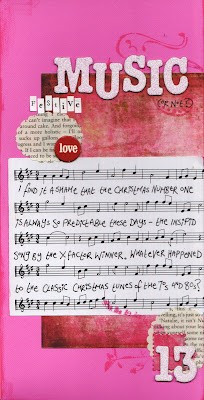 MUSIC
FeStive
love
I FIND IT A SHAME THAT THE CHRISTMAS NUMBER ONE
IS ALWAYS SO PREDICTABLE THESE DAYS - THE INSIPID
SONG BY THE X FACTOR WINNER. WHATEVER HAPPENED
TO THE CLASSIC CHRISTMAS TUNES OF THE 70s AND 80s?
13